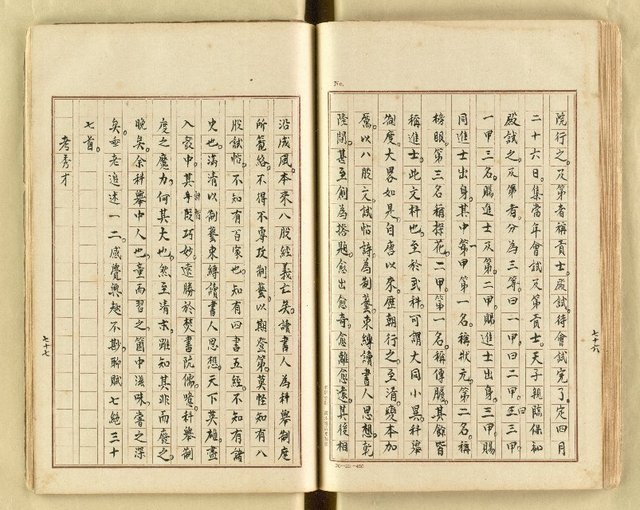 院行之。及第者稱貢士。殿試。待會試完了。定四月
二十六日。集當年會試及第貢士。天子親臨保和
殿試之。及第者。分為三等。曰一甲。曰二甲。曰三甲。
一甲三名。賜進士及第。二甲。賜進士出身。三甲賜
同進士出身。其中第甲第一名。稱狀元。第二名。稱
榜眼。第三名稱探花。二甲。第一名。稱傳臚。其餘皆
稱進士。此文科也。至於武科。可謂大同小異。科舉
制度。大畧如是。自唐以來。歷朝行之。至清。變本加
厲。以八股文。試帖詩。為制藝。束縛讀書人思想。
甚至創為搭題。愈出愈奇。愈離愈遠。其後相
七十六
沿成風。本來八股經義亡矣。讀書人為科舉制度
所籠絡。不得不專攻制藝。以期登第。莫怪知有八
股試帖。不知有百家也。知有四書五經。不知有諸
史也。滿清以制藝束縛讀書人思想。天下英雄。盡
入彀中。其手段巧妙。遠勝於焚書阬儒。噫。科舉制
度之魔力。何其大也。然至清末。雖知其非而廢之。
晚矣。余科舉中人也。童而習之。箇中滋味。嘗之深
矣。垂老追述一二。感覺無趣。不勘聊賦七絕三十
七首。
考秀才
七十七
No.